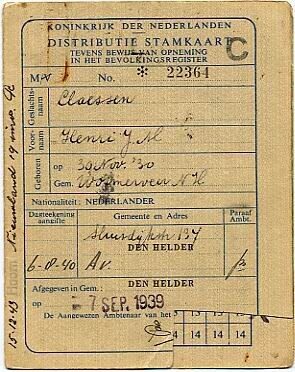 KONINKRIJK DER NEDERLANDEN
DISTRIBUTIE STAMKAART
TEVENS BEWIJS VAN OPNEMING
IN HET BEVOLKINGSREGISTER
C
M/V No. * 22364
Geslachts-
naam
Claessen
Voor-
naam
Henri J. M.
Geboren op 30 Nov. '30
Gem. Wormerveer N H
Nationaliteit: NEDERLANDER
Dagteekening
aangifte
Gemeente en Adres
Paraaf
Ambt.
Sluisdijkstr 134
DEN HELDER
6-8-40
DEN HELDER
Afgegeven in Gem.:
op
-7 SEP. 1939
De Aangewezen Ambtenaar van het
13 13 13
14 14 14 14
15.12.43